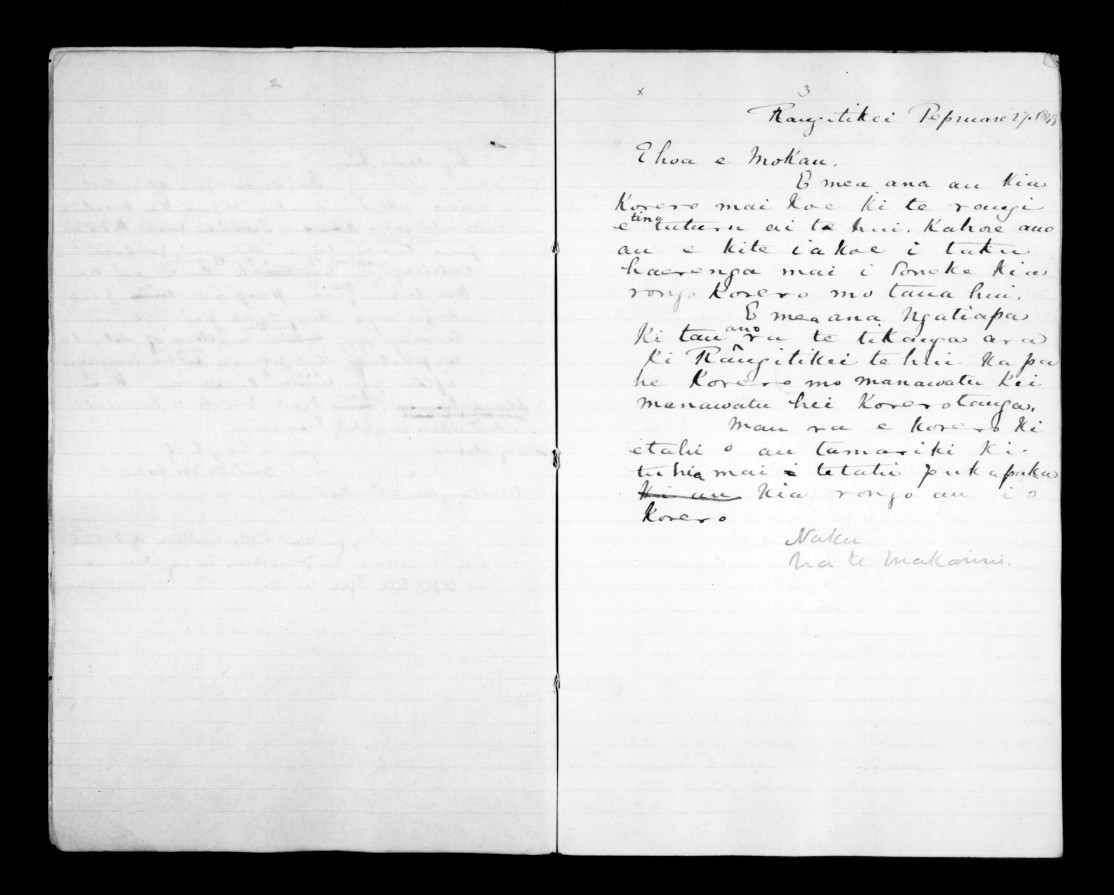 2
x 3
Rangitikei Pepuere 27. 1849
E hoa e Mokau.
E mea ana au kia
Korero mai koe ki te rangi
e tino tuturu ai te hui. Kahore ano
au e kite i a koe i taku
haerenga mai i Poneke kia
rongo korero mo taua hui.
E mea ana Ngatiapa
Ki tau ano ra te tikanga ara
ki Rangitikei te hui. Ka pa
he korero mo manawatu kei
manawatu hei Korerotanga.
Mau ra e korero ki
etahi o au tamariki ki
tuhia mai i tetahi pukapuka
ki au kia rongo au i o
korero
Naku
Na te Makarini.